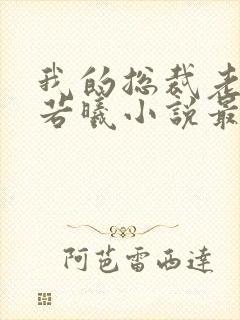 我的总裁老
若曦小説最
阿芭雷西達